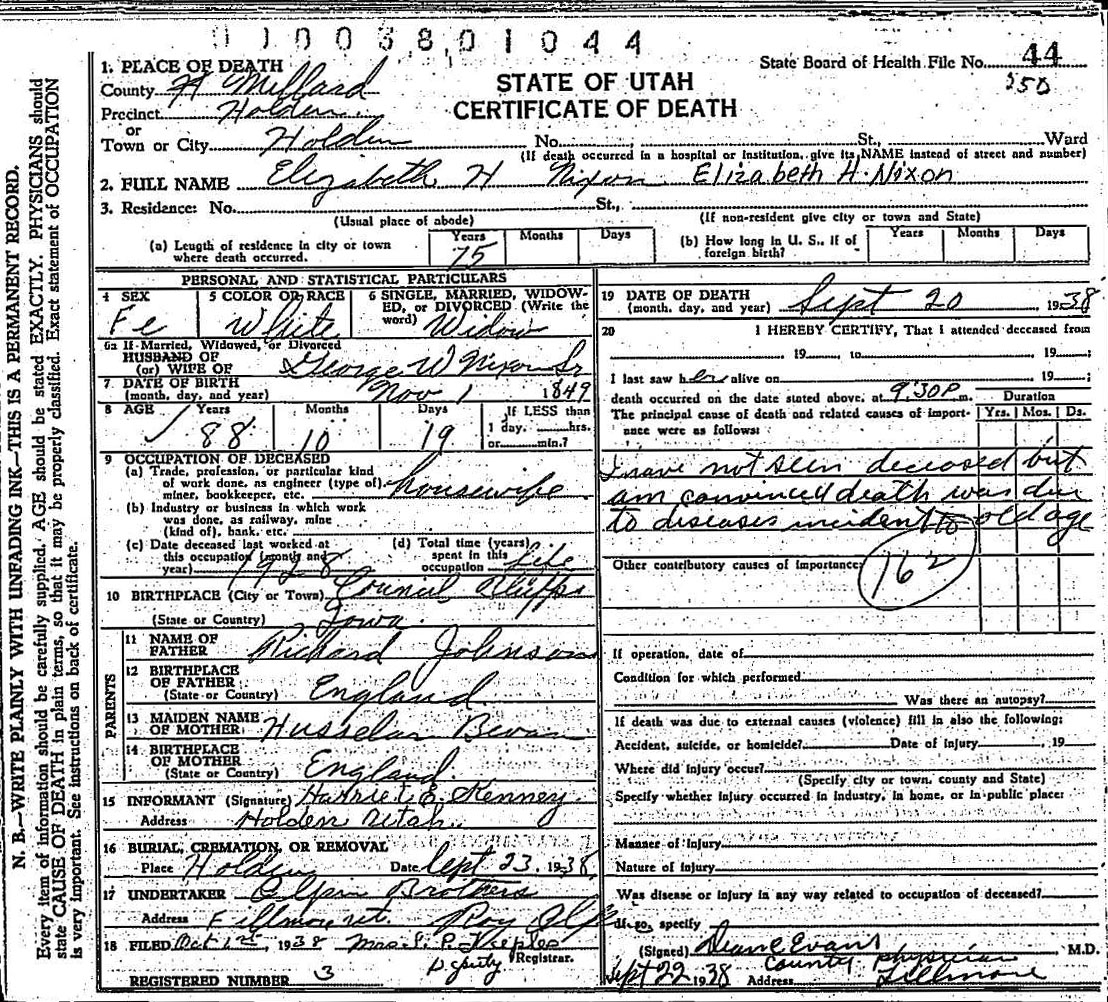 N. B.—WRITE PLAINLY WITH UNFADING INK—THIS IS A PERMANENT RECORD.
Every item of information should be carefully supplied. AGE should be stated EXACTLY. PHYSICIANS should
state CAUSE OF DEATH in plain terms, so that it may be properly classified. Exact statement of OCCUPATION
is very important. See instructions on back of certificate.
0 1 0 0 3 8 0 1 0 4 4
State Board of Health File No. 44
250
STATE OF UTAH
CERTIFICATE OF DEATH
1. PLACE OF DEATH
County Millard
Precinct Holden
or
Town or City Holden No. St., Ward
(If death occurred in a hospital or institution, give its NAME instead of street and number)
2. FULL NAME Elizabeth H Nixon Elizabeth H. Nixon
3. Residence: No. St.,
(Usual place of abode) (If non-resident give city or town and State)
(a) Length of residence in city or town where death occurred. Years 75 Months Days
(b) How long in U. S., if of foreign birth? Years Months Days
PERSONAL AND STATISTICAL PARTICULARS
4 SEX Fe
5 COLOR OR RACE White
6 SINGLE, MARRIED, WIDOWED, OR DIVORCED (Write the word) Widow
6a If Married, Widowed, or Divorced
HUSBAND OF
(or) WIFE OF George W Nixon Sr
7 DATE OF BIRTH
(month, day, and year) Nov 1 1849
8 AGE Years 88 Months 10 Days 19 If LESS than 1 day, hrs. or min.?
9 OCCUPATION OF DECEASED
(a) Trade, profession, or particular kind
of work done, as engineer (type of),
miner, bookkeeper, etc. housewife
(b) Industry or business in which work
was done, as railway, mine
(kind of), bank, etc.
(c) Date deceased last worked at
this occupation (month and
year) 1928
(d) Total time (years)
spent in this
occupation Life
10 BIRTHPLACE (City or Town) Council Bluffs
(State or Country) Iowa
PARENTS
11 NAME OF
FATHER Richard Johnson
12 BIRTHPLACE
OF FATHER
(State or Country) England
13 MAIDEN NAME
OF MOTHER Bevan
14 BIRTHPLACE
OF MOTHER
(State or Country) England
15 INFORMANT (Signature) Harriet E. Kenney
Address Holden Utah
16 BURIAL, CREMATION, OR REMOVAL
Place Holden Date Sept 23, 1938
17 UNDERTAKER Olpin Brothers
Address Fillmore ut. Roy Olp
18 FILED Oct 1st, 1938 Mrs.
Deputy Registrar.
REGISTERED NUMBER 3
19 DATE OF DEATH
(month, day, and year) Sept 20 1938
20 I HEREBY CERTIFY, That I attended deceased from
19 , to 19 ;
I last saw her alive on 19 ;
death occurred on the date stated above, at 9:30P m.
Duration
Yrs. Mos. Ds.
The principal cause of death and related causes of importance were as follows:
I have not seen deceased but
am convinced death was due
to diseases incident to old age
Other contributory causes of importance:
162
If operation, date of
Condition for which performed
Was there an autopsy?
If death was due to external causes (violence) fill in also the following:
Accident, suicide, or homicide? Date of injury , 19
Where did injury occur?
(Specify city or town, county and State)
Specify whether injury occurred in industry, in home, or in public place:
Manner of Injury
Nature of Injury
Was disease or injury in any way related to occupation of deceased?
If so, specify
(Signed) Dean E Evans M.D.
County physician
Sept 22 1938 Address Fillmore